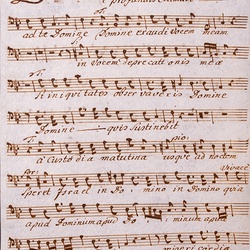 ad te Domine Domine exaudi vocem meam
in vocem deprecationis meæ
Si iniquitates observaveris Domine
Domine quis sustinebit
pio:
a Custodia matutina usque ad noctem
Vivace
Speret Israel in Do, mino in Domino quia
apud Dominum apud Do, minum apud
misericordia